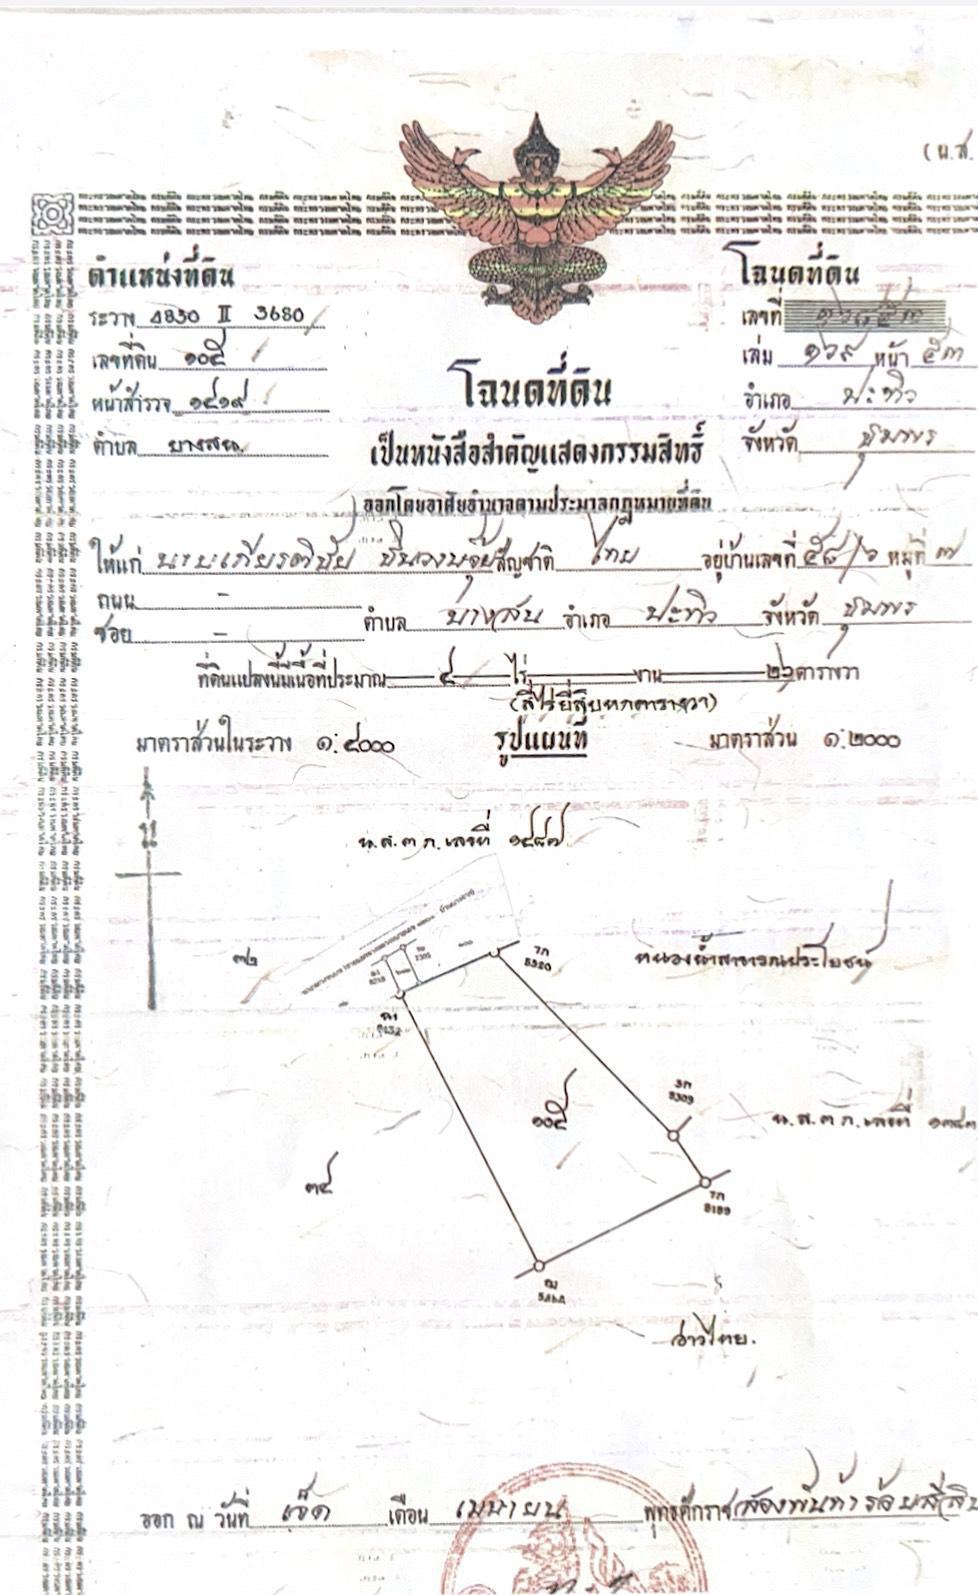 (น.ส.
ตำแหน่งที่ดิน
ระวาง 4830 II 3680
เลขที่ดิน ๑๐๕
หน้าสำรวจ ๑๔๑๙
ตำบล บางสน
โฉนดที่ดิน
เลขที่
เล่ม ๑๖๙ หน้า ๕๓
อำเภอ ปะทิว
จังหวัด ชุมพร
โฉนดที่ดิน
เป็นหนังสือสำคัญแสดงกรรมสิทธิ์
ออกโดยอาศัยอำนาจตามประมวลกฎหมายที่ดิน
ให้แก่ นายเกียรติชัย สัญชาติ ไทย อยู่บ้านเลขที่ ๕๘/๖ หมู่ที่ ๗
ถนน -
ซอย - ตำบล บางสน อำเภอ ปะทิว จังหวัด ชุมพร
ที่ดินแปลงนี้มีเนื้อที่ประมาณ ๔ ไร่ งาน ๒๖ ตารางวา
(สี่ไร่ยี่สิบหกตารางวา)
มาตราส่วนในระวาง ๑:๔๐๐๐ รูปแผนที่ มาตราส่วน ๑:๒๐๐๐
น
น.ส.๓ ก.เลขที่ ๑๔๔๗
๗๒
หนองน้ำสาธารณประโยชน์
๑๐๕
น.ส.๓ ก.เลขที่
๓๔
อ่าวไทย.
ออก ณ วันที่ เจ็ด เดือน เมษายน พุทธศักราช สองพันห้าร้อยสี่สิบ